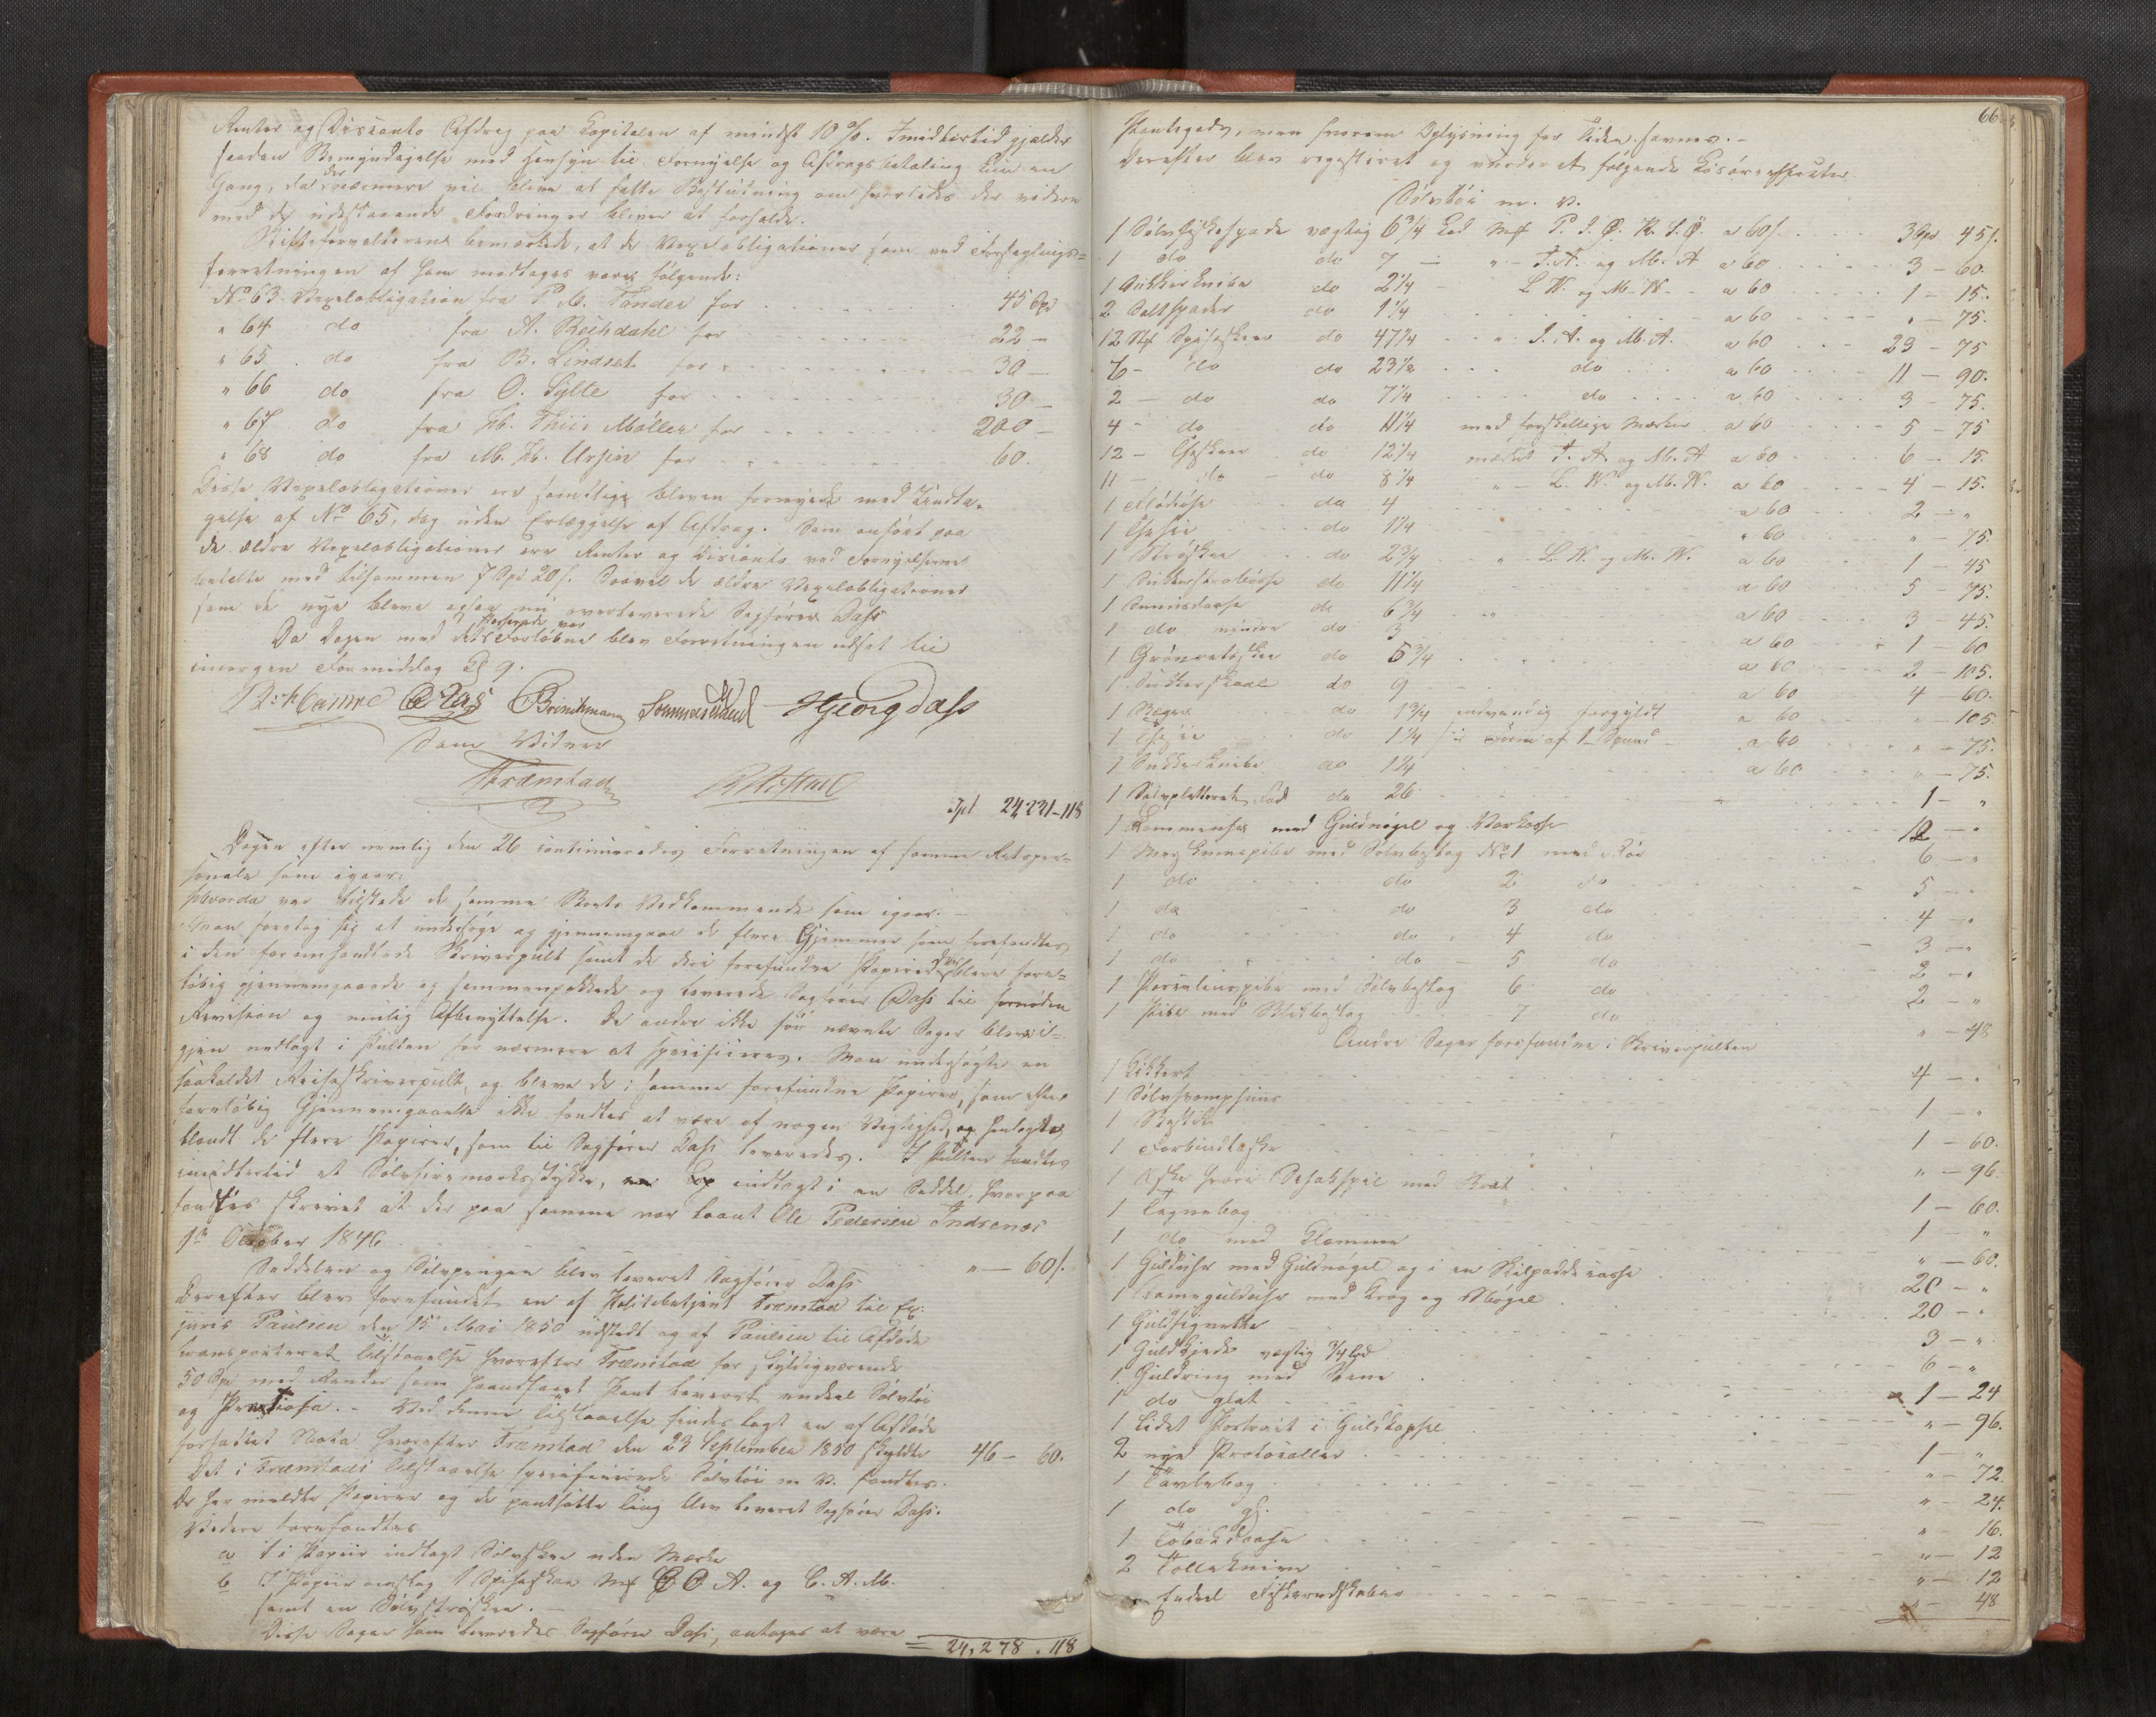 Renter og Disconto Afdrag paa Capitalen af mindst 10 %. Imidlertid gjælder
saadan Bemyndigelse med Hensyn til Fornyelse og Afdragsbetaling kun en
Gang, da der nærmere vil blive at fatte Beslutning om hvorledes der videre
med de udestaaende Fordringer bliver at forholde.
Skifteforvalteren bemærkede, at de Vexelobligationer som ved Forseglings-
forretningen af ham modtoges vare følgende:
No 63 Vexelobligation fra P. M. Tønder for 45 Spd
" 64 do fra A. Bechdahl for 22 —
" 65 do fra B. Lindset for 30 —
" 66 do fra O. Sylte for 30 —
" 67 do fra H. Thiis Møller for 200 —
" 68 do fra M. H. Ursin for 60.
Disse Vexelobligationer ere samtlige bleven fornyede med Undta-
gelse af No 65, dog uden Erlæggelse af Afdrag. Som anført paa
de ældre Vexelobligationer ere Renter og Disconto ved Fornyelserne
betalte med tilsammen 7 Spd 20 s. Saavel de ældre Vexelobligationer
som de nye bleve ogsaa nu overleverede Sagfører Dass
Da Dagen med det Passerede var forløben blev Forretningen udsat til
imorgen Formiddag Kl 9.
C Dass Brinchmann Hjeorg Dass
Som Vidner
Træmstad
Tpt 24,231-118
Dagen efter nemlig den 26 continueredes Forretningen af samme Retsper-
sonale som igaar.
Hvorda var tilstede de samme Boets Vedkommende som igaar. —
Man foretog sig at undersøge og gjennemgaae de flere Gjemmer som forefandtes
i den foromhandlede Skriverpult samt de deri forefundne Papirer der bleve fore-
løbig gjennemgaaede og sammenpakkede og leverede Sagfører Dass til fornøden
Revision og mulig Afbenyttelse. De andre ikke før nævnte Sager bleve i-
gjen nedlagt i Pulten for nærmere at specificeres. Man undersøgte en
saakaldet Reiseskriverpult, og bleve de i samme forefundne Papirer, som efter
foreløbig Gjennemgaaelse ikke fandtes at være af nogen Vigtighed, henlagte
blandt de flere Papirer, som til Sagfører Dass leveredes. I Pulten fandtes
imidlertid et Sølvfiremarksstykke, indlagt i en Seddel, hvorpaa
fandtes skrevet at der paa samme var laant Ole Pedersen Indrenæs
1ste October 1846
Seddelen og Sølvpengen blev leveret Sagfører Dass " — 60 s.
Derefter blev forefundet en af Politibetjent Træmstad til Ex:
juris Paulsen den 15 Mai 1850 udstedt og af Paulsen til Afdøde
transporteret Tilstaaelse hvorefter Træmstad for skyldigværende
50 Spd med Renter som haandfaaet Pant leveret endeel Sølvtøi
og Pretiosa. — Ved denne Tilstaaelse findes lagt en af Afdøde
forfattet Nota hvorefter Træmstad den 23 September 1850 skyldte 46 — 60.
Det i Træmstads Tilstaaelse specificerede Sølvtøi m. v. fandtes.
De her meldte Papirer og de pantsatte Ting blev leveret Sagfører Dass.
Videre forefandtes
a 1 i Papiir indlagt Sølvskee uden Mærke
b I Papiir omslag 1 Spiseskee Mk O A. og C. A. M.
samt en Sølvstrøskee. —
Disse Sager som leveredes Sagfører Dass, antages at være
24,278 . 118
66
Pantegods, men hvorom Oplysning for Tiden savnes. —
Derefter blev registreret og vurderet følgende Løsøreeffecter
Sølvtøi m. v.
1 Sølvfiskespade vægtig 6 3/4 Lod Mk P. I. Ø. K. S. Ø. a 60 s. 3 Spd 45 s.
1 do do 7 — " — I. A. og M. A a 60 3 — 60.
1 Sukkerknibe do 2 1/4 — L W. og M. W. a 60 1 — 15.
2 Saltspader do 1 1/4 a 60 " — 75.
12 Stk Spiseskeer do 47 1/4 " I. A. og M. A. a 60 23 — 75
6 — do do 23 1/2 do a 60 11 — 90.
2 — do do 7 1/4 do a 60 3 — 75.
4 — do do 11 1/4 med forskellige Mærker a 60 5 — 75
12 — Theskeer do 12 1/4 mærket I. A. og M. A a 60 6 — 15.
11 — do do 8 1/4 " — L. W. og M. W. a 60 4 — 15.
1 Flødeøse do 4 a 60 2 — "
1 Thesie do 1 1/4 " 60 " — 75.
1 Strøskee do 2 3/4 " L. W. og M. W. a 60 1 — 45
1 Sukkerstrøbøsse do 11 1/4 a 60 5 — 75.
1 Snuusdaase do 6 3/4 a 60 3 — 45.
1 do mindre do 3 a 60 1 — 60
1 Grønsatøskee do 5 3/4 a 60 2 — 105.
1 Sukkerskaal do 9 a 60 4 — 60.
1 Bæger do 1 3/4 indvendig forgyldt a 60 " — 105
1 Thesie do 1 1/4 i Form af 1 Spand a 60 " — 75.
1 Sukkerknibe do 1 1/4 a 60 " — 75.
1 Sølvpletteret Fad do 26 1 — "
1 Lommeuhr med Guldnøgel og Værkasse 12 — "
1 Merskumspibe med Sølvbeslag No 1 med Rør 6 — "
1 do do 2 do 5 — "
1 do do 3 do 4 — "
1 do do 4 do 3 — "
1 do do 5 do 2 — "
1 Porcelainspibe med Sølvbeslag 6 do 2 — "
1 Pibe med Blikbeslag 7 do " — 48
Andre Sager forefundne i Skriverpulten
1 Kikkert 4 — "
1 Sølvsvamphuus 1 — "
1 Bestik 1 — 60.
1 Forbindtaske " — 96
1 Æske hvori Schakspil med Bræt 1 — 60.
1 Tegnebog 1 — "
1 do med Klemme " — 60.
1 Gulduhr med Guldnøgel og i en Skilpaddecasse 20 — "
1 Dameguldduhr med Krog og Nøgel 20 — "
1 Guldsignette 3 — "
1 Guldkjede vægtig 3/4 Lod 6 — "
1 Guldring med Steen 1 — 24
1 do glat " — 96.
1 Lidet Portrait i Guldkapsel 1 — "
2 nye Protocoller " — 72.
1 Tavlebog " — 24.
1 do gl. " — 16.
1 Tobaksdaase " — 12
2 Tolleknive " — 12
Endeel Fiskeredskaber " — 48